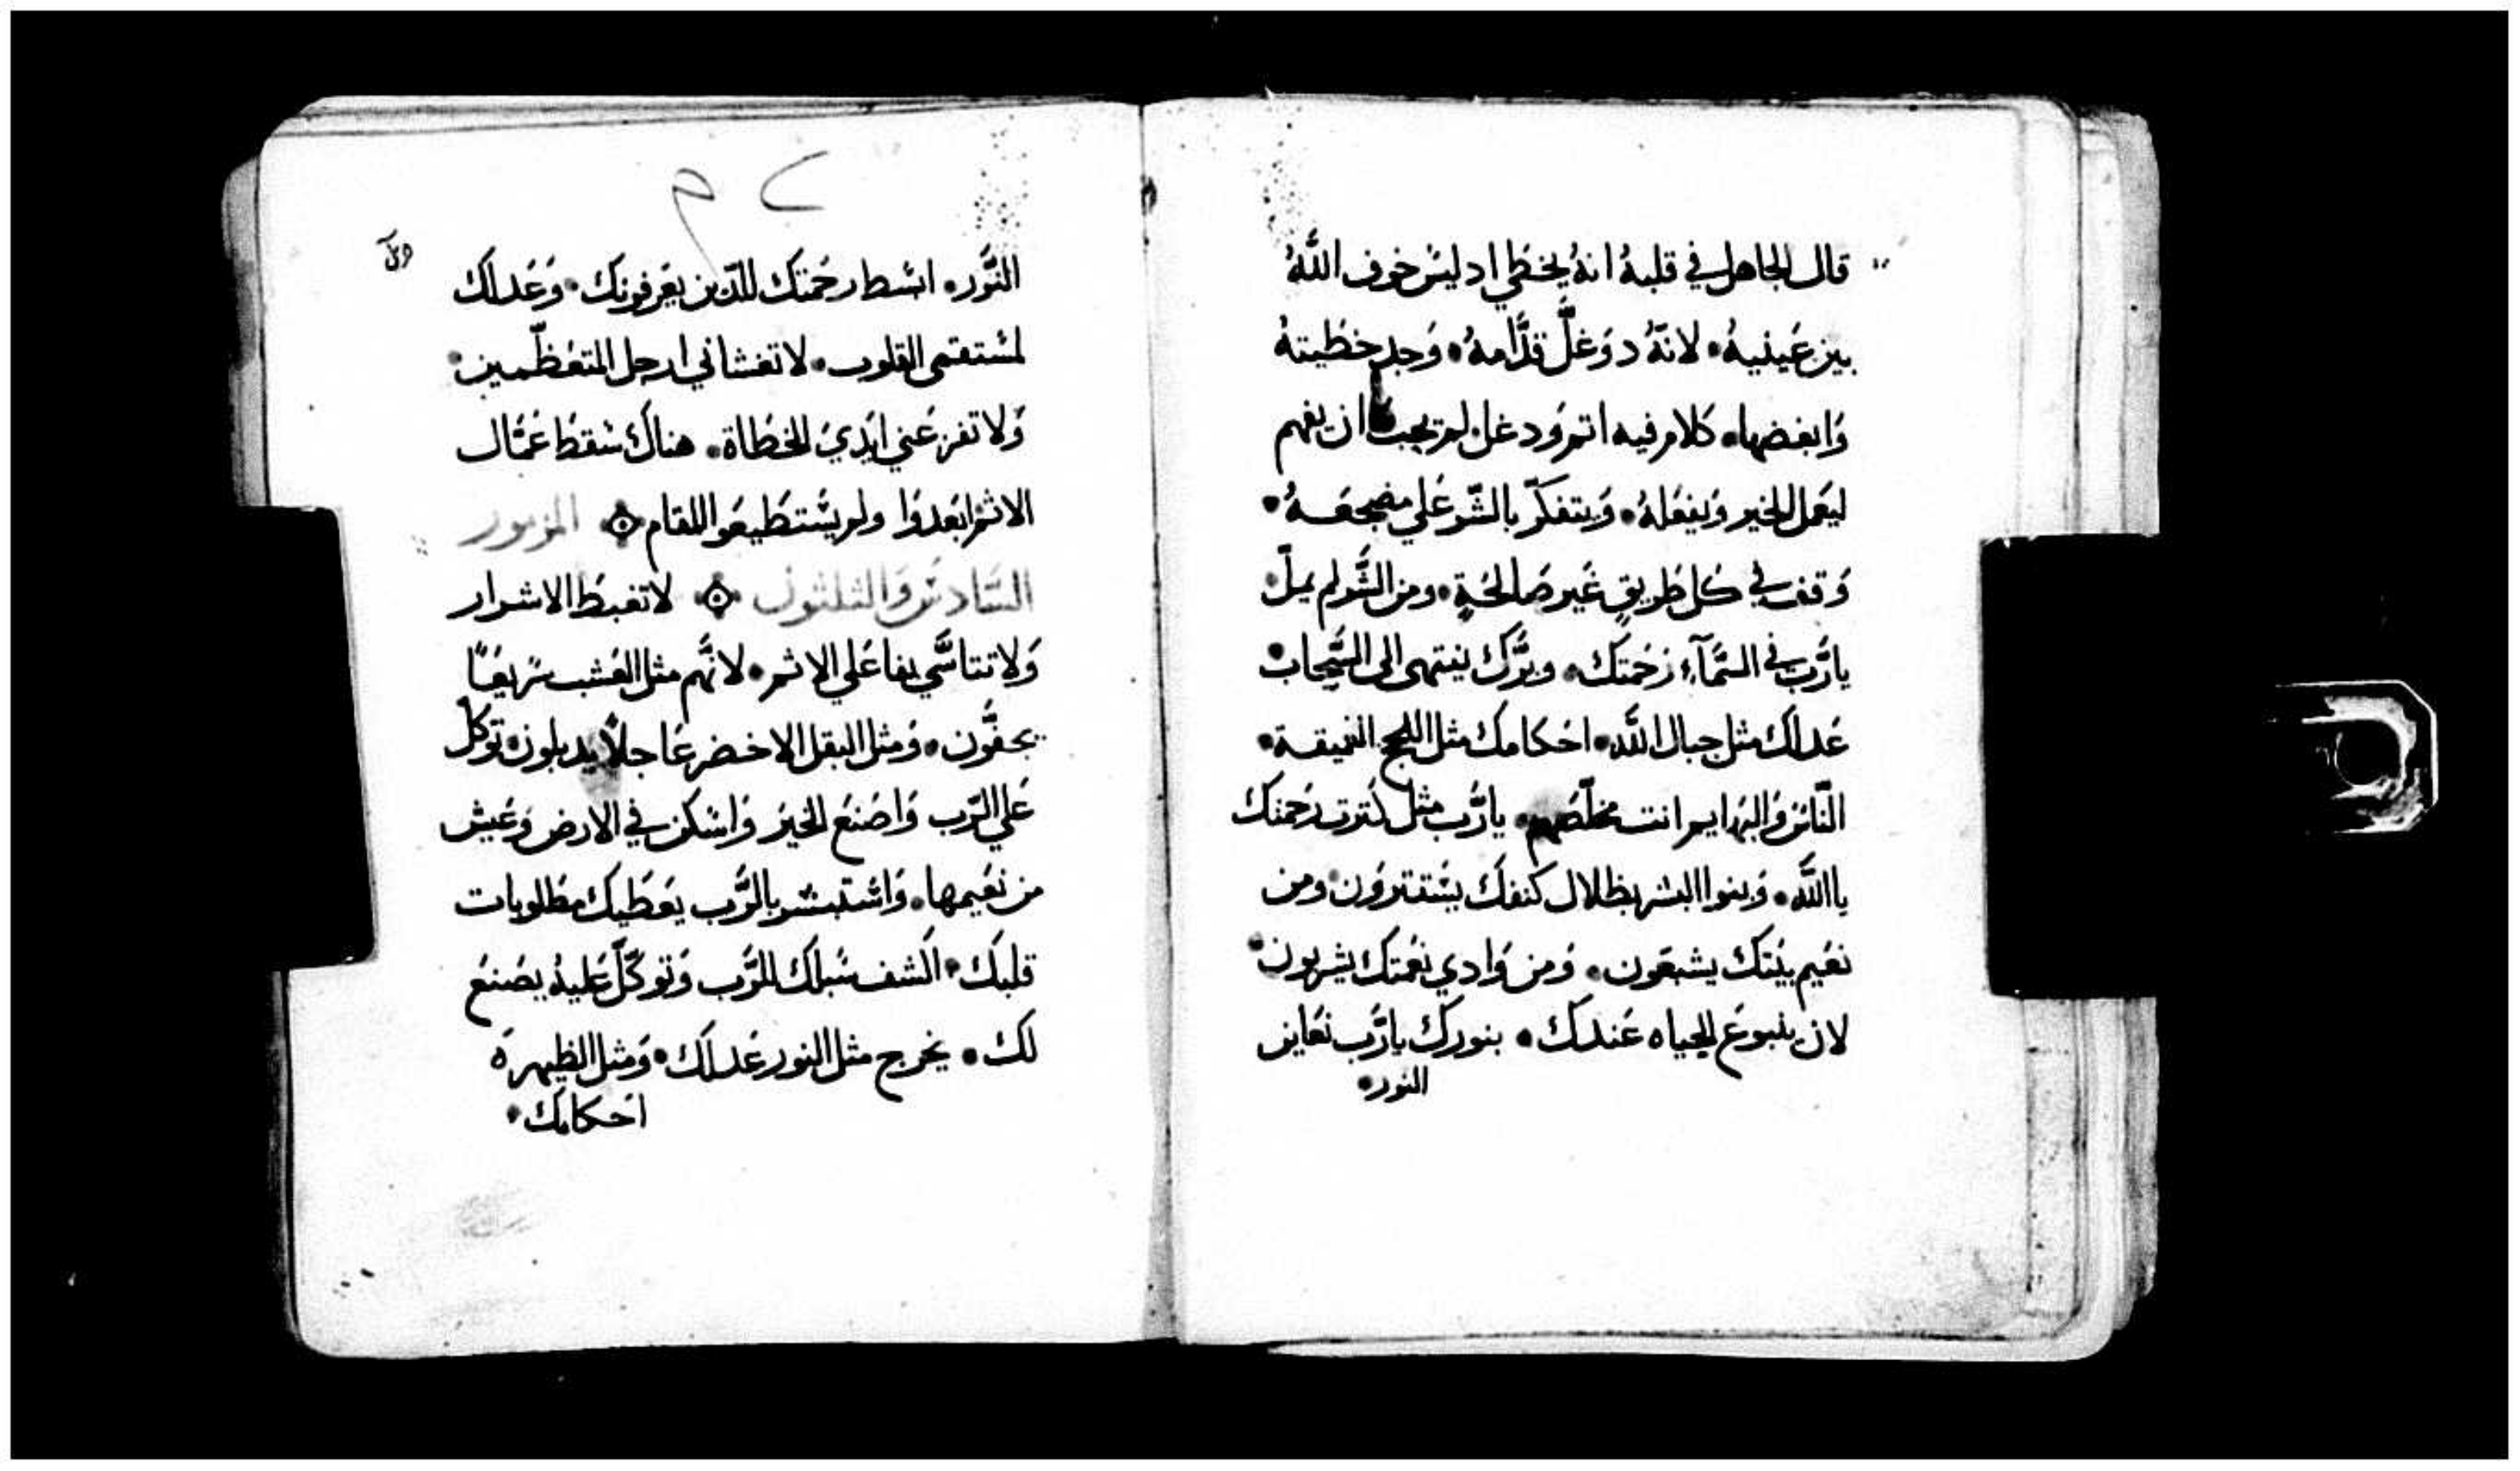 قال الجاهل في قلبهُ انهُ يخطي اد ليسَ خوف اللَّهُ
بين عَينيهُ • لانّهُ دوَغلَّ قدَّامهُ • وَجد خطيتهُ
وَابغضها • كلام فيه اتم وَدغل لم يحب ان يفهم
ليعَمل الخير وَيفعَلهُ • وَيتفكّر بالشّر عَلي مضجعَـهُ •
وَقف في كل طريقٍ غَير صَالحَةٍ • ومن الشَّر لم يملّ •
يارَّب في السَّمآءِ رَحمَتك • وبرَّك ينتهى الى السَّحاب •
عَدلك مثل جبال اللَّه • احَكامك مثل اللجج الغَميقـة •
النّاسَ وَالبهَايم انت مخلّصَهم • يارَّب مثل كترت رَحمتك
ياالله • وَبنوا البشر بظلال كنفك يسَتترَون • ومن
نعَيم بيَتك يشبعَون • وَمن وَادي نعَمتك يشربون •
لان ينبوعَ الحياه عَندك • بنورك يارَّب نعَاين
النور •
النَّور • ابسَط رحَمتك للدّين يعَرفونك • وَعَدلك
لمسَتقمى القلوب • لا تغشاني ارجل المتعَظّمين •
وَلا تفزعَني ايَدي الخطَاة • هناك سَقط عَمَّال
الاثم ابعَدوَا ولم يسَتطَيعَوا اللقام ۞ المزمور
السَّادسَ وَالثلثون ۞ لا تغبطَ الاشرار
وَلا تتاسَّي بفاعَلي الاثم • لانَّهم مثل العَشب سَريعَـًا
يجفَّون • وَمثل البقل الاخضر عَاجلًا يدبلون • توَكل
عَلي الرّب وَاصَنعَ الخيَر وَاسَكن في الارض وَعَيش
من نعَيمها • وَاسَتبشر بالرَّب يعَطَيك مطلوبات
قلبَك • اكَشف سَبلك للرَّب وَتوكلّ عَليهُ يصَنعَ
لك • يخرج مثل النور عَدلَك • وَمثل الظهيرَه
احَكامك •